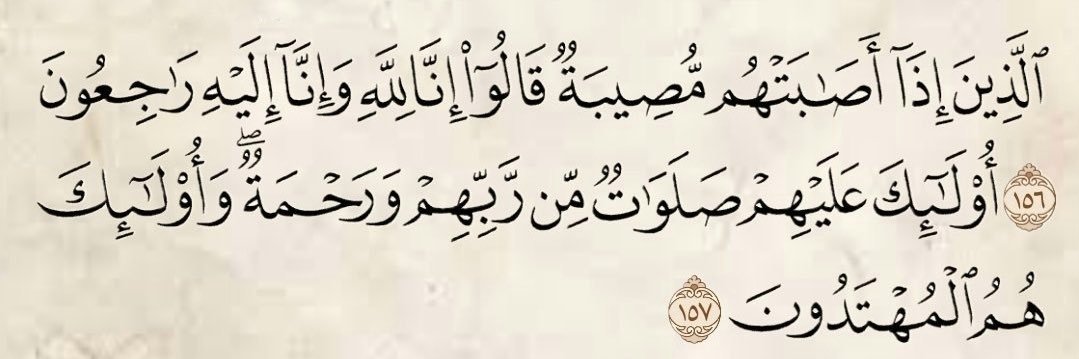 ٱلَّذِينَ إِذَآ أَصَٰبَتْهُم مُّصِيبَةٌ قَالُوٓا۟ إِنَّا لِلَّهِ وَإِنَّآ إِلَيْهِ رَٰجِعُونَ
١٥٦ أُو۟لَٰٓئِكَ عَلَيْهِمْ صَلَوَٰتٌ مِّن رَّبِّهِمْ وَرَحْمَةٌ ۖ وَأُو۟لَٰٓئِكَ
هُمُ ٱلْمُهْتَدُونَ ١٥٧